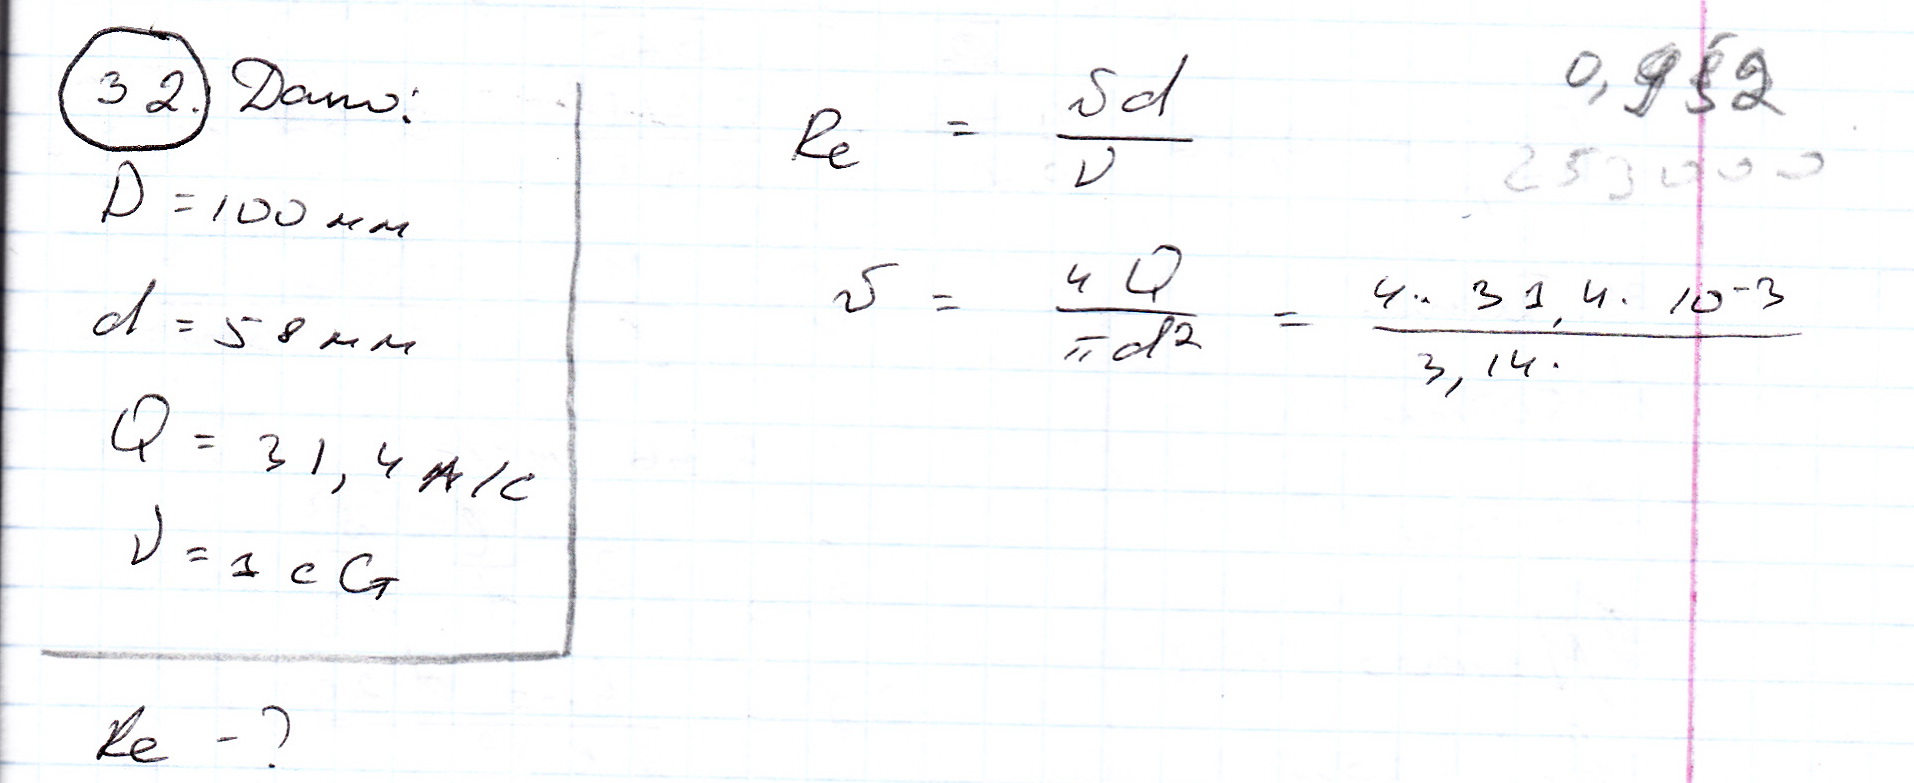 32. Дано:
D = 100 мм
d = 58 мм
Q = 31,4 л/с
ν = 1 сСт
Re - ?
Re = υd / ν
υ = 4Q / πd² = 4 · 31,4 · 10⁻³ / 3,14 ·
253000